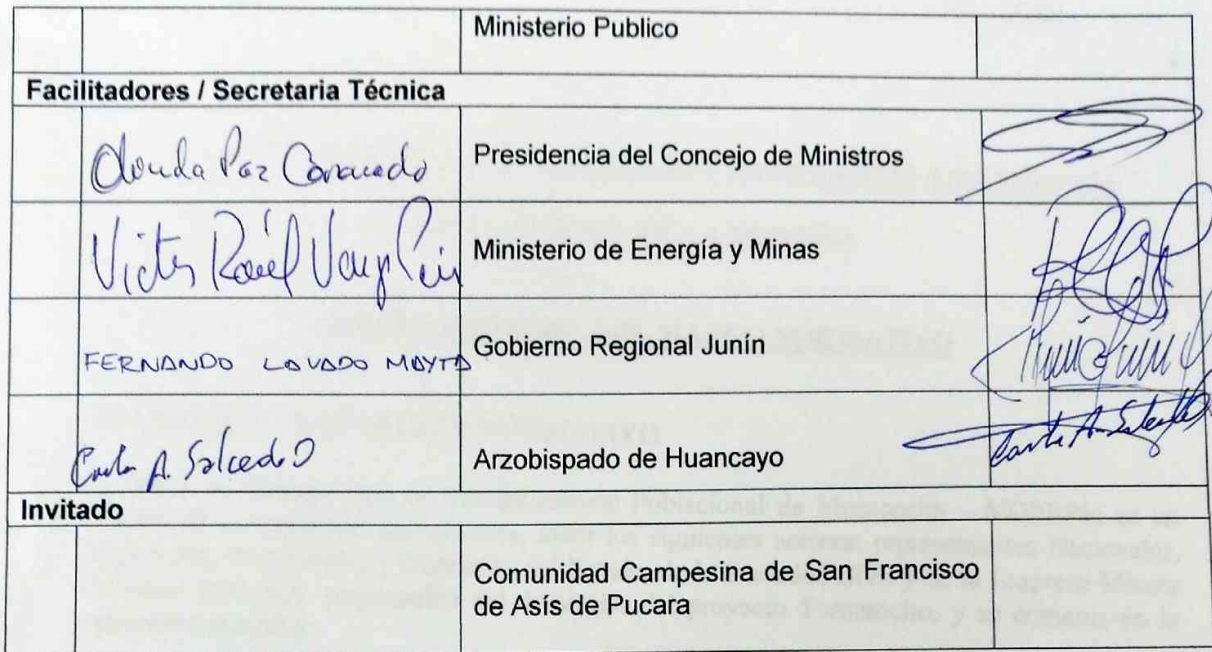 Ministerio Publico
Facilitadores / Secretaria Técnica
Paz Presidencia del Concejo de Ministros
Victor Raúl Ministerio de Energía y Minas
FERNANDO LOVADO MAYTA Gobierno Regional Junín
Carla A. Salcedo O Arzobispado de Huancayo
Carla A. Salcedo
Invitado
Comunidad Campesina de San Francisco
de Asís de Pucara